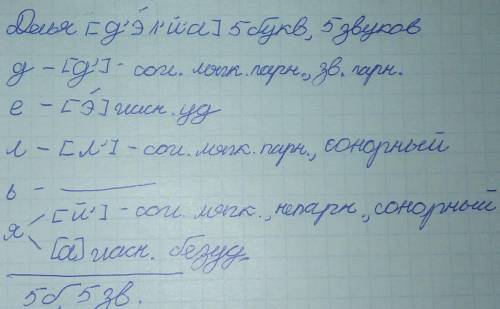 Делья [д'э́л'йа] 5 букв, 5 звуков
д - [д'] - согл. мягк. парн., зв. парн.
е - [э́] гласн. уд
л - [л'] - согл. мягк. парн., сонорный
ь - ———
я < [й'] - согл. мягк., непарн., сонорный
[а] гласн. безуд.
5 б, 5 зв.